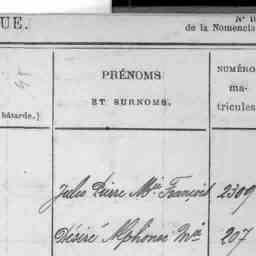 UE. N° 1
de la Nomencla
PRÉNOMS NUMÉRO
ET SURNOMS. ma-
bâtarde.) tricules
Jules Pierre Mie François 2309
Désiré Alphonse Mie 207